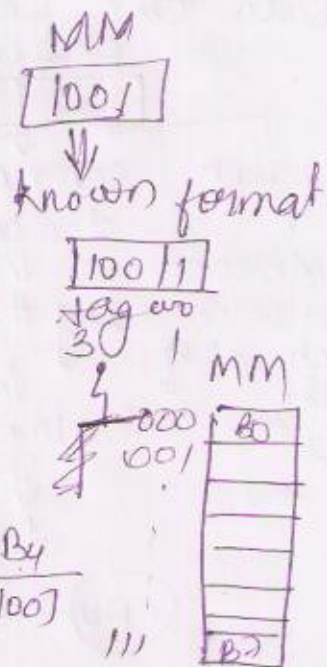 MM
1001
⇓
known format
100 | 1
tag wo
3 1
MM
000 B0
001
B4
100
111 B7